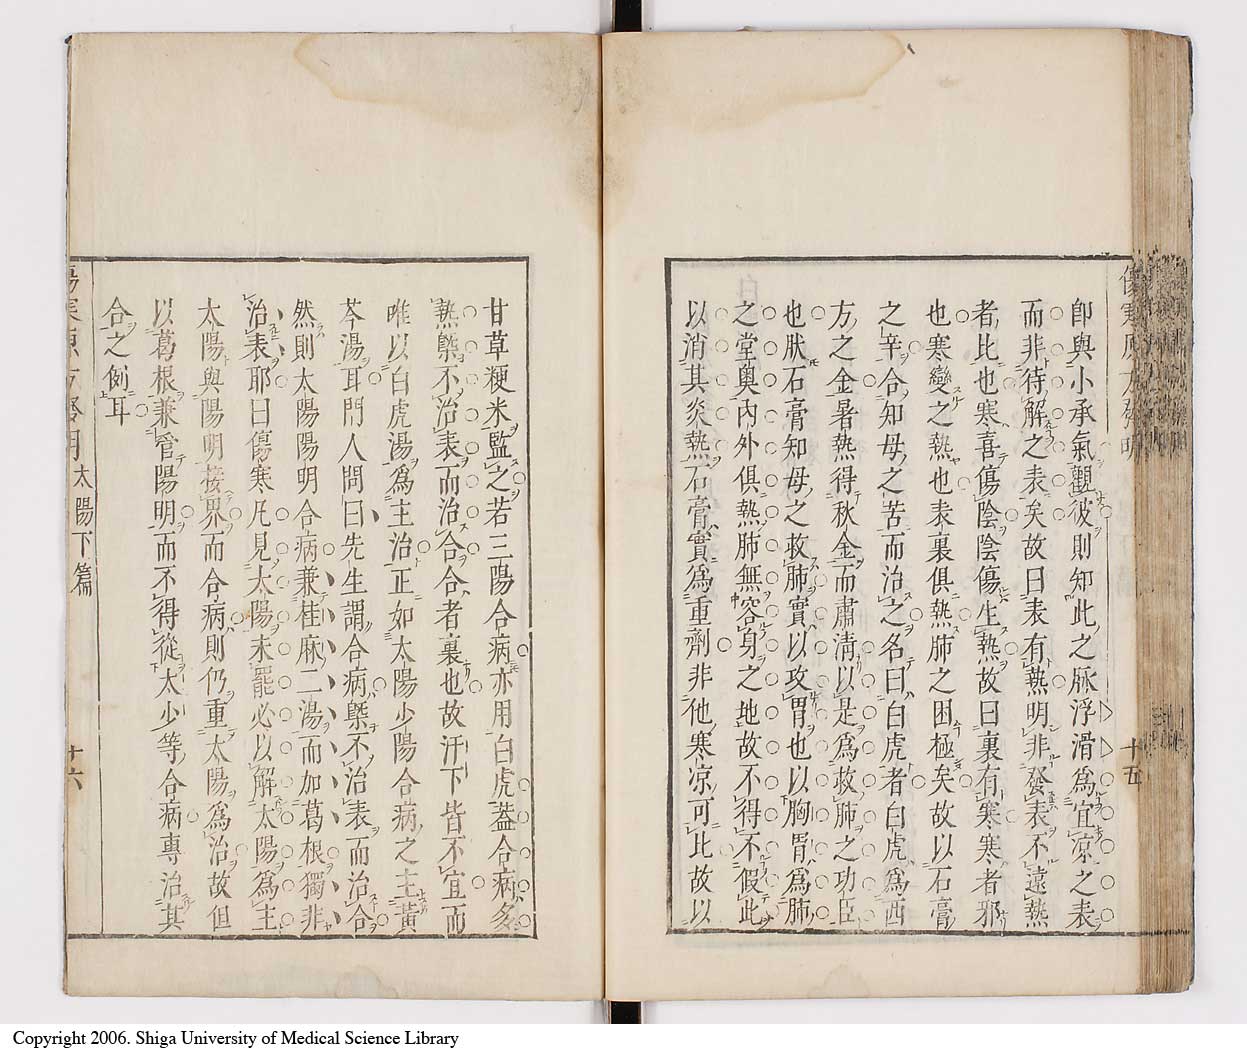 傷寒原方發明
十五
即與小承氣觀彼則知此之脉浮滑爲宜凉之表
而非待解之表矣故曰表有熱明非發表不遠熱
者比也寒喜傷陰陰傷生熱故曰裏有寒寒者邪
也寒變之熱也表裏俱熱肺之困極矣故以石膏
之辛合知母之苦而治之名曰白虎者白虎爲西
方之金暑熱得秋金而肅清以是爲救肺之功臣
也肰石膏知母之救肺實以攻胃也以胸胃爲肺
之堂奧内外俱熱肺無容身之地故不得不假此
以消其炎熱石膏實爲重劑非他寒凉可比故以
甘草粳米監之若三陽合病亦用白虎蓋合病多
熱槩不治表而治合合者裏也故汗下皆不宜而
唯以白虎湯爲主治正如太陽少陽合病之主黃
芩湯耳門人問曰先生謂合病槩不治表而治合
然則太陽陽明合病兼桂麻二湯而加葛根獨非
治表耶曰傷寒凡見太陽未罷必以解太陽爲主
太陽與陽明接界而合病則仍重太陽爲治故但
以葛根兼管陽明而不得從太少等合病專治其
合之例耳
太陽下篇
十六
Copyright 2006. Shiga University of Medical Science Library